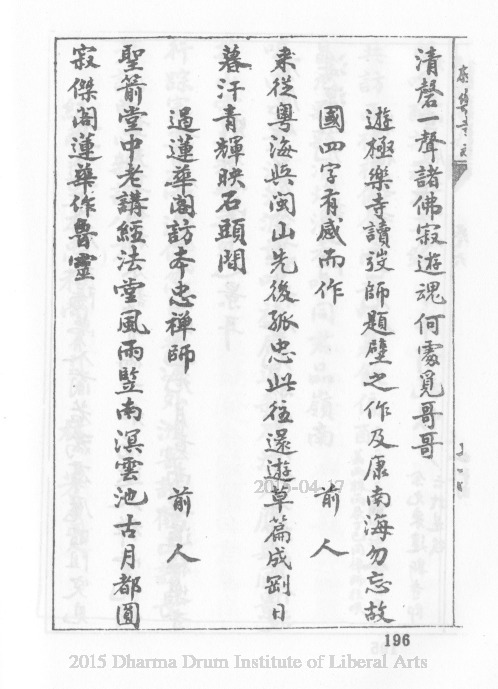 清磬一聲諸佛寂遊魂何處覓哥哥
遊極樂寺讀弢師題壁之作及康南海勿忘故
國四字有感而作 前人
來從粵海與閩山先後孤忠此往還遊草篇成剛日
暮汗青輝映石頭間
過蓮華閣訪本忠禪師 前人
聖箭堂中老講經法堂風雨暨南溟雲池古月都圓
寂傑閣蓮華作魯靈
196
2015-04-17
2015 Dharma Drum Institute of Liberal Arts